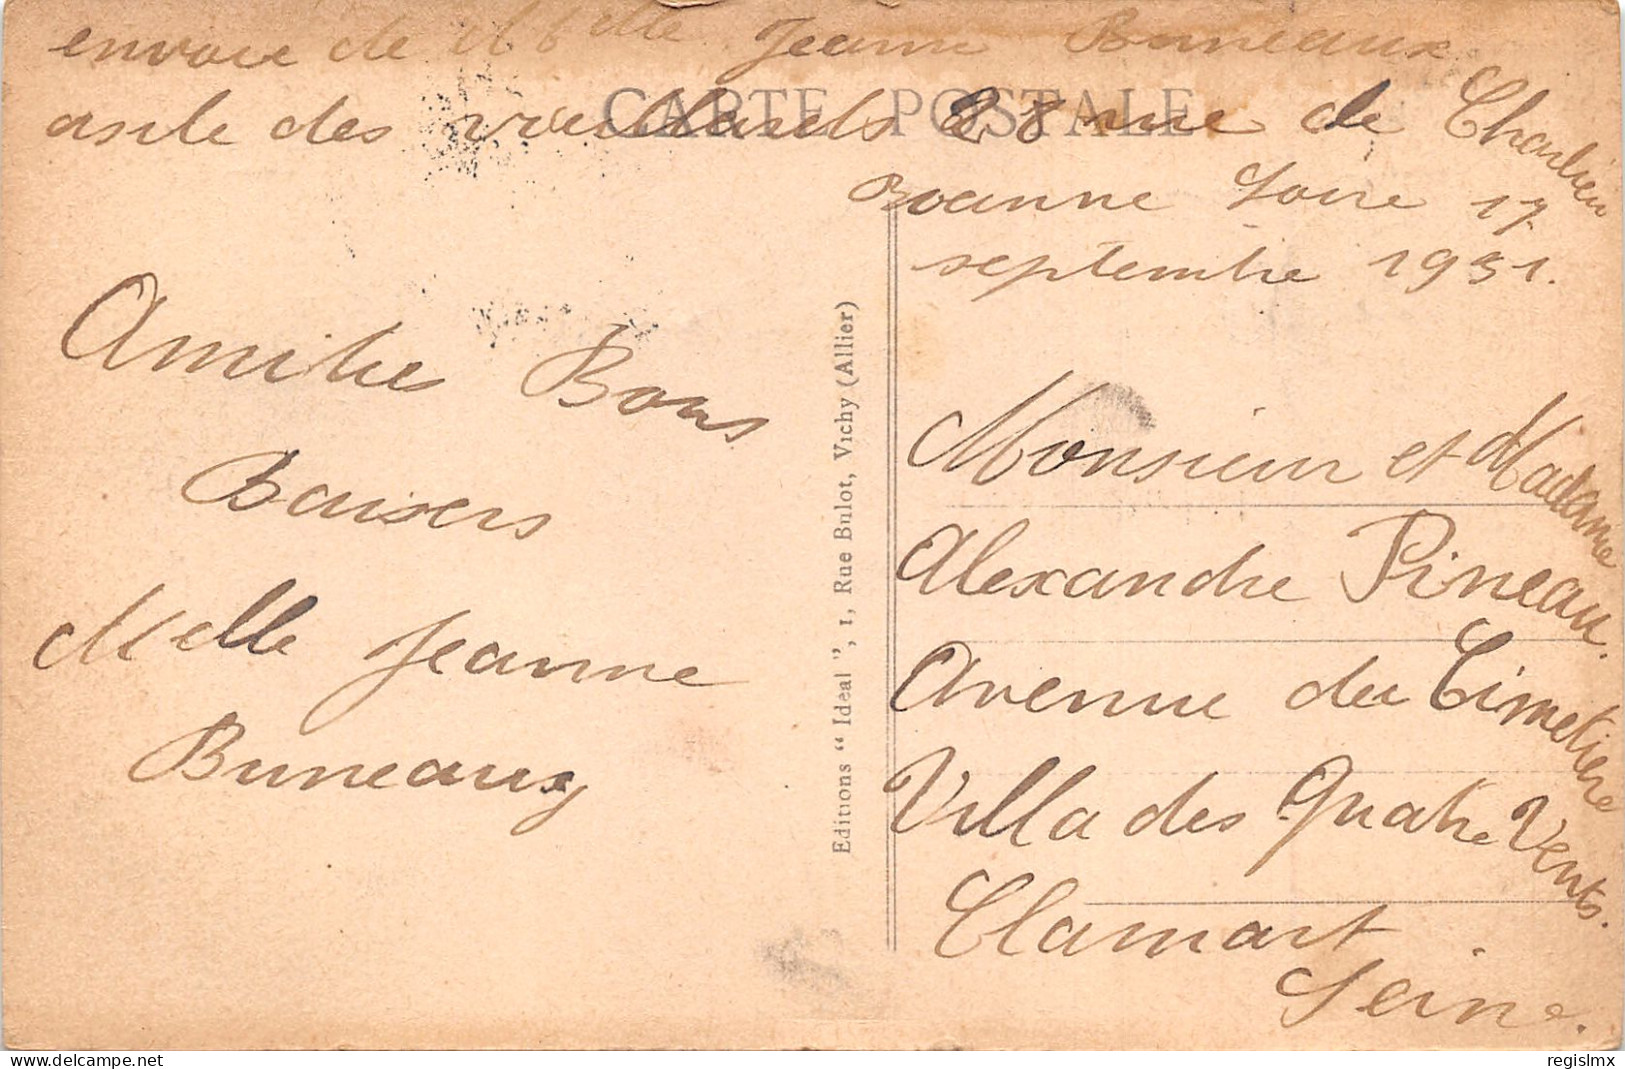 envoie de Melle Jeanne Buneaux
CARTE POSTALE
asile des vieillards 28 rue de Charlieu
Roanne Loire 17
septembre 1931.
Amitiés Bons
Baisers
Melle Jeanne
Buneaux
Editions "Idéal", 1, Rue Bulot, Vichy (Allier)
Monsieur et Madame
Alexandre Pineau.
Avenue du Cimetière
Villa des Quatre Vents.
Clamart
Seine.
delcampe.net
regislmx